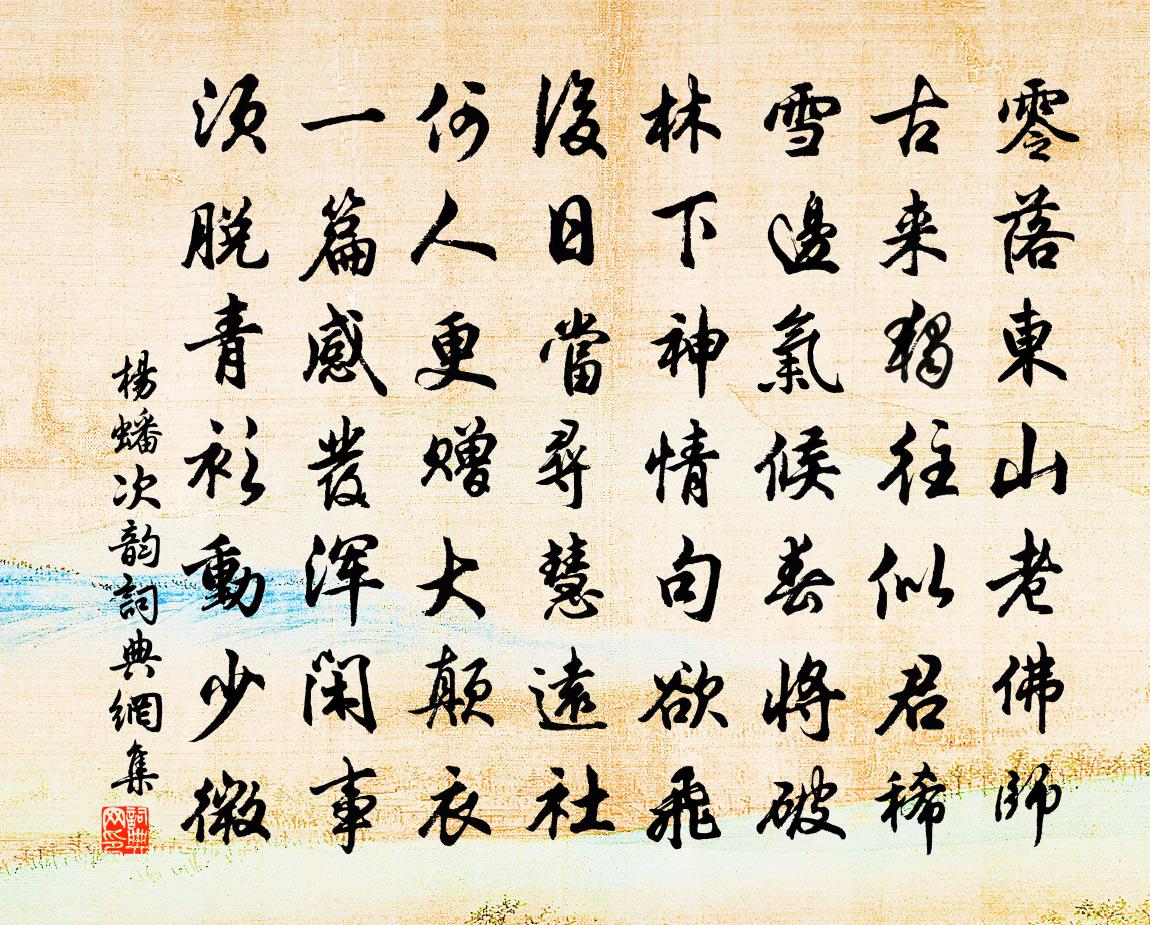 零落東山老佛師
古来獨往似君稀
雪邊氣候春將破
林下神情句欲飛
後日當尋慧遠社
何人更贈大顛衣
一篇感發渾閑事
須脫青衫動少微
楊蟠次韵詞典網集
詞典網印